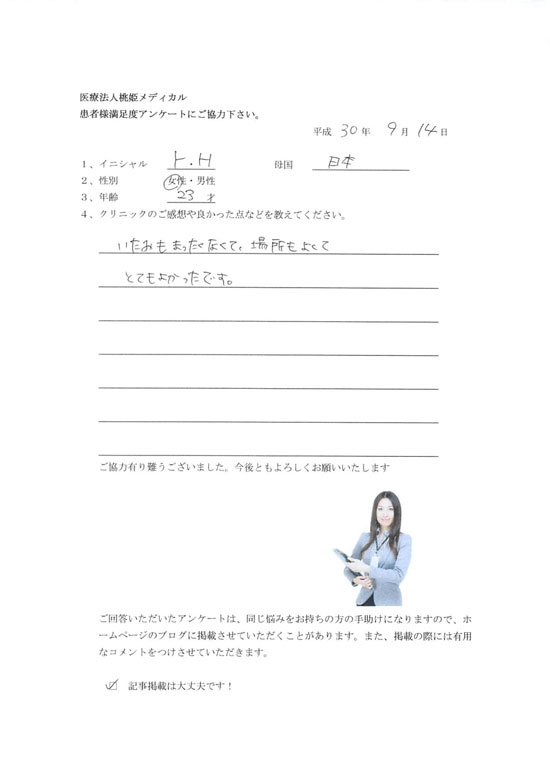 医療法人桃姫メディカル
患者様満足度アンケートにご協力下さい。
平成 30 年 9 月 14 日
1、イニシャル ト.H 母国 日本
2、性別 女性・男性
3、年齢 23 才
4、クリニックのご感想や良かった点などを教えてください。
いたみもまったくなくて、場所もよくて
とてもよかったです。
ご協力有り難うございました。今後ともよろしくお願いいたします
ご回答いただいたアンケートは、同じ悩みをお持ちの方の手助けになりますので、ホ
ームページのブログに掲載させていただくことがあります。また、掲載の際には有用
なコメントをつけさせていただきます。
☑ 記事掲載は大丈夫です！